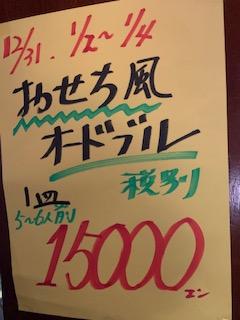 12/31. 1/2~1/4
おせち風
オードブル
税別
1皿
5~6人前
15000
エン